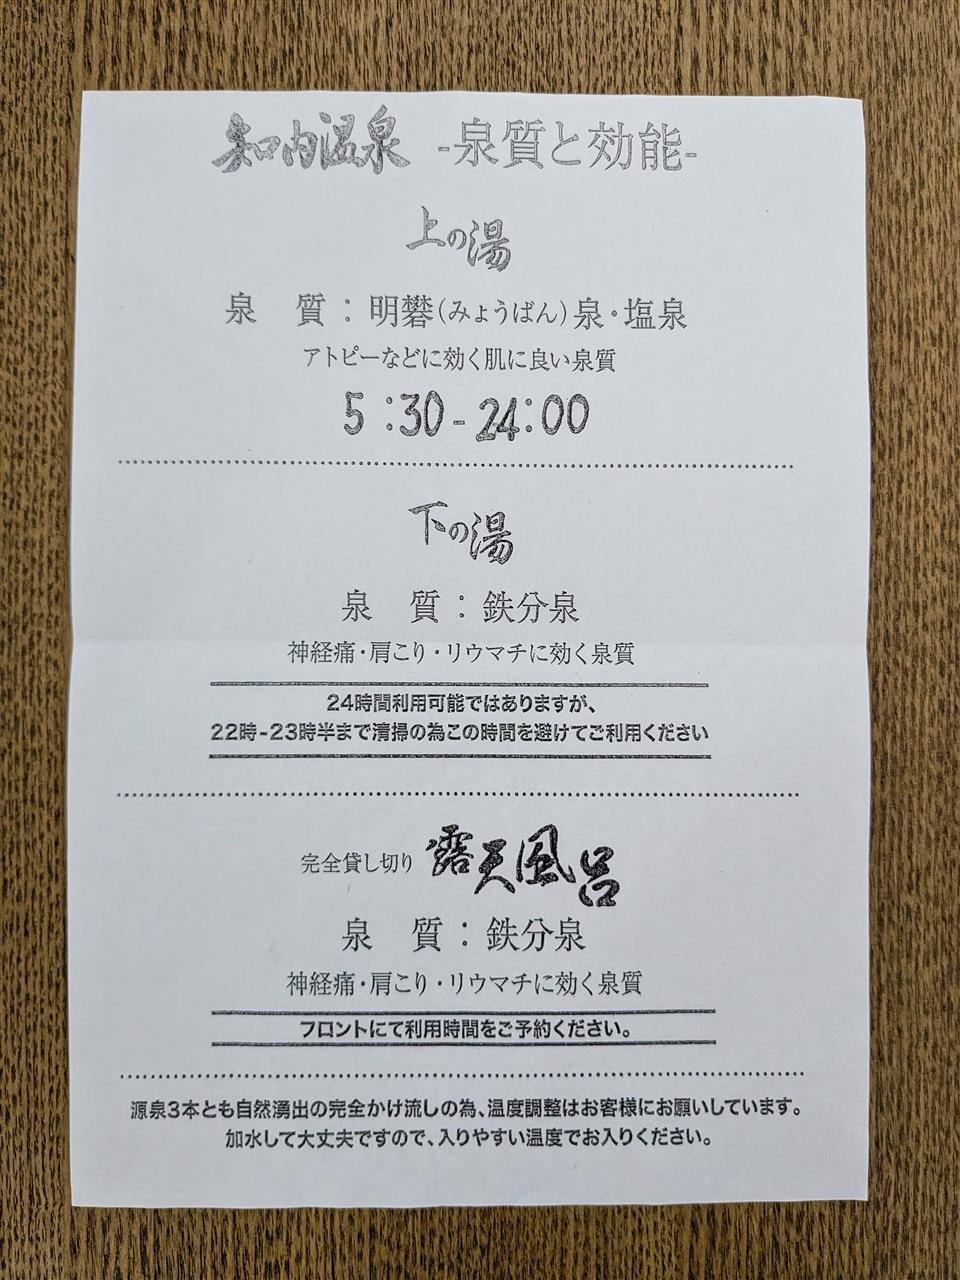 知内温泉 -泉質と効能-
上の湯
泉 質：明礬(みょうばん)泉・塩泉
アトピーなどに効く肌に良い泉質
5:30-24:00
下の湯
泉 質：鉄分泉
神経痛・肩こり・リウマチに効く泉質
24時間利用可能ではありますが、
22時-23時半まで清掃の為この時間を避けてご利用ください
完全貸し切り 露天風呂
泉 質：鉄分泉
神経痛・肩こり・リウマチに効く泉質
フロントにて利用時間をご予約ください。
源泉3本とも自然湧出の完全かけ流しの為、温度調整はお客様にお願いしています。
加水して大丈夫ですので、入りやすい温度でお入りください。